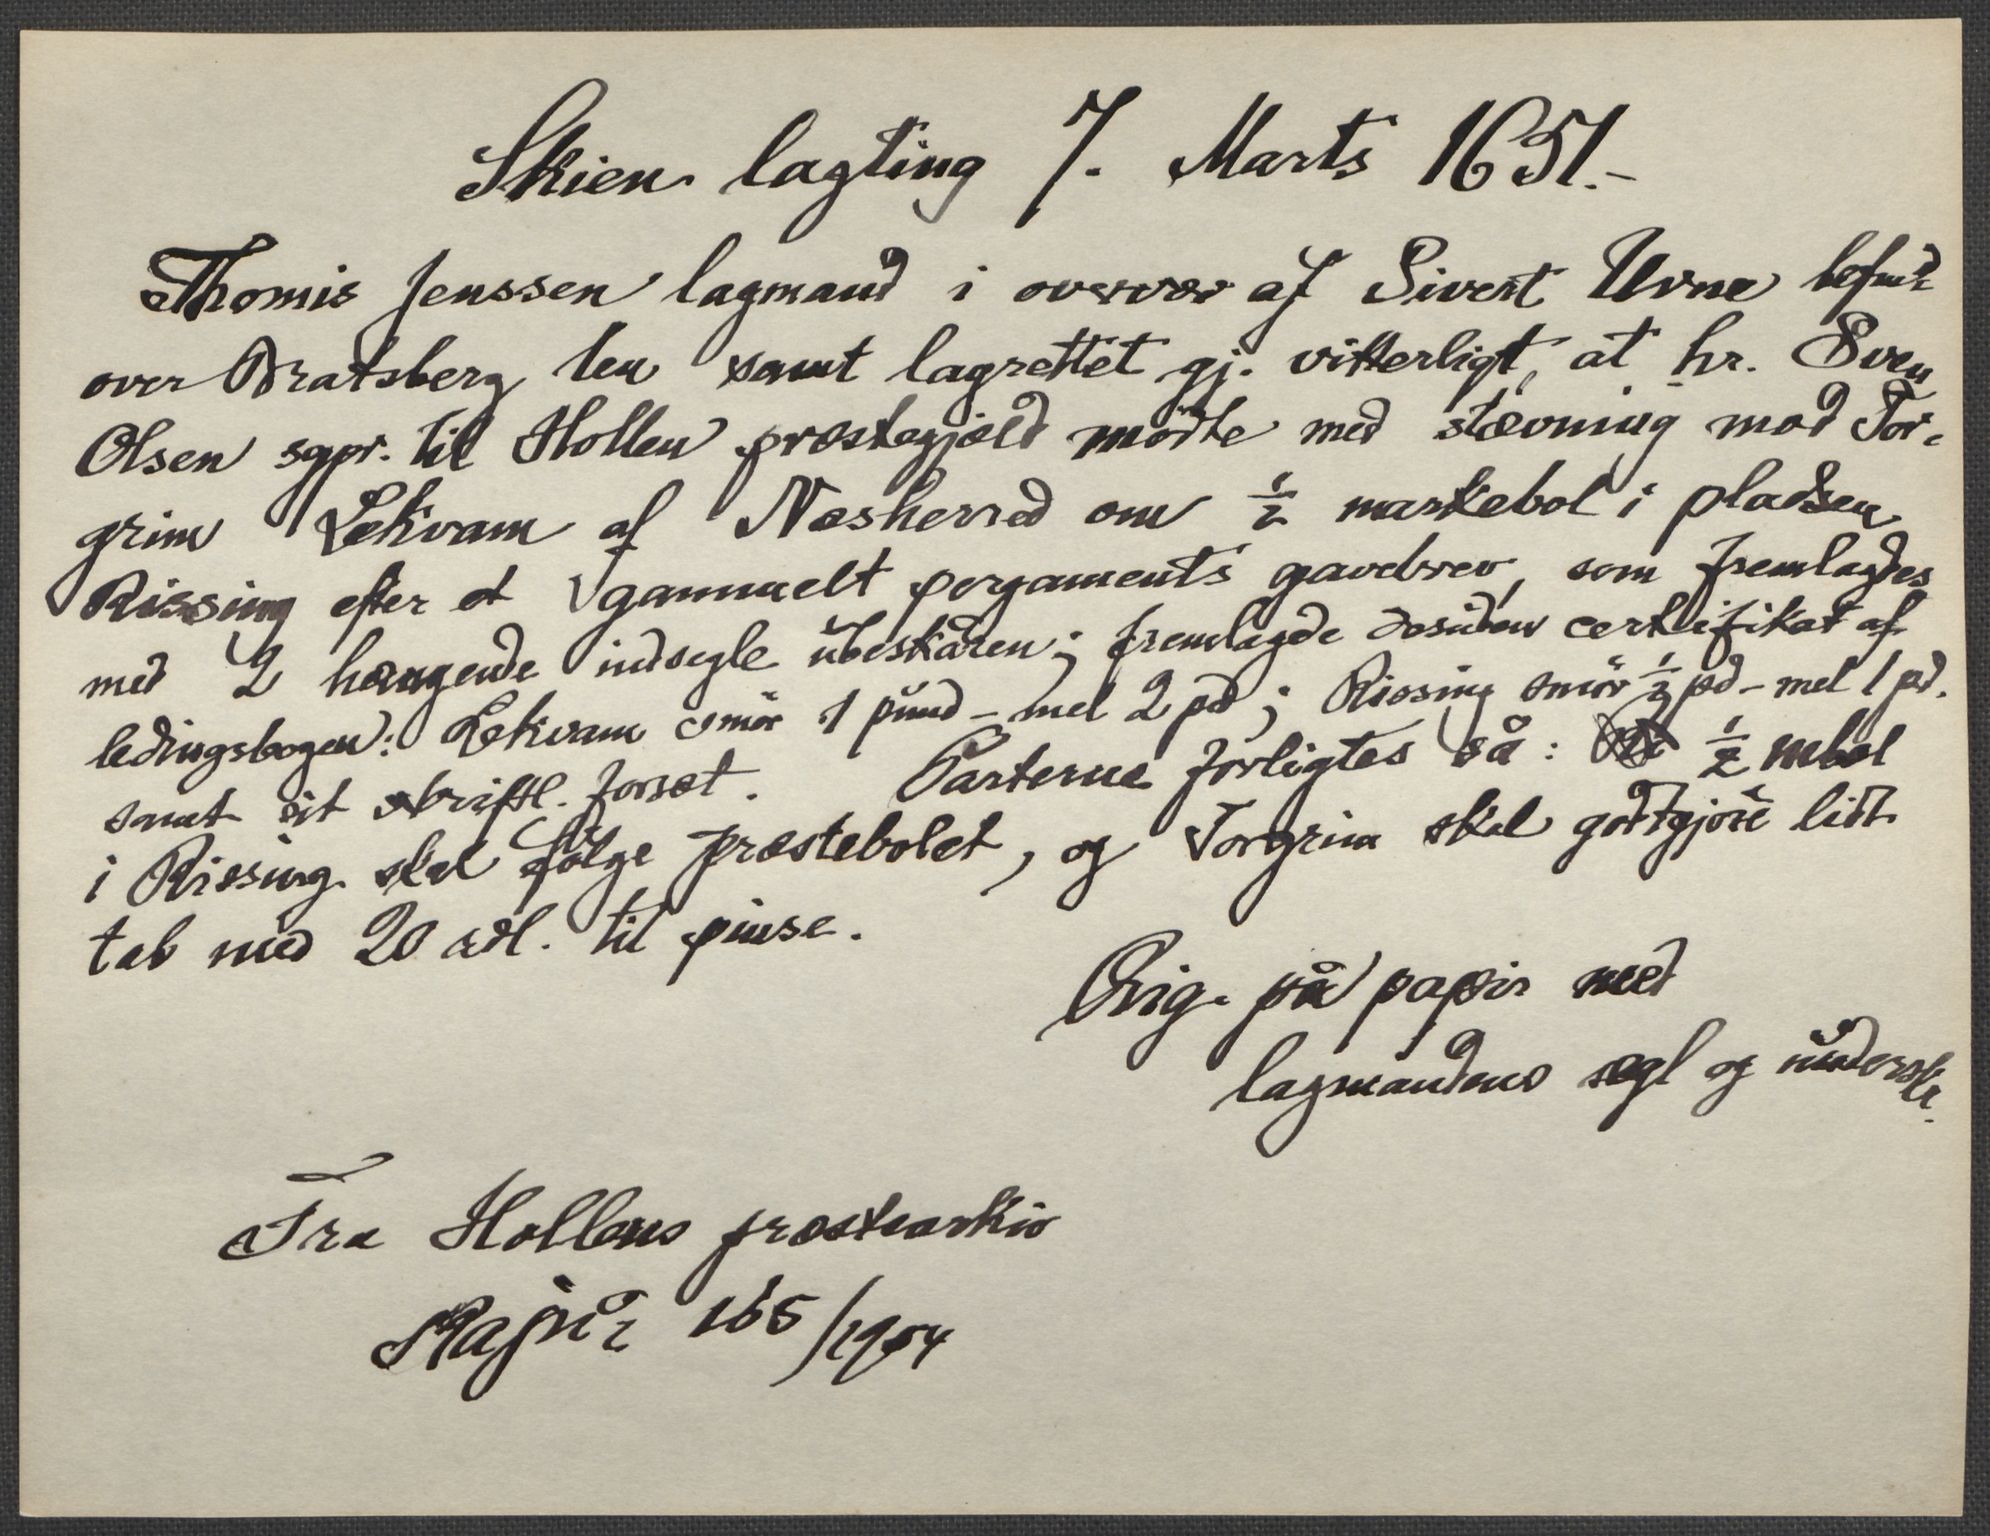 Skien lagting 7. Marts 1651.-
Thomis Jenssen lagmand i overvær af Sivert Urne
over Bratsberg len samt lagrettet gj. vitterligt, at hr. Sven
Olsen sgpr. til Hollen præstegjæld mødte med stævning mod Tor-
grim Lekvam af Næsherred om ½ markebol i pladsen
Rissing efter et gammelt pergaments gavebrev, som fremlagdes
med 2 hængende indsegle ubeskåren; fremlagde desuden certifikat af
ledingsbogen: Lekvam smör 1 pund - mel 2 pd; Rissing smör ½ pd - mel 1 pd.
samt sit skriftl. forsæt. Parterne forligtes så: ½ mbol
i Rissing skal følge præstebolet, og Torgrim skal godtgjöre lidt
tab med 20 rdl. til pinse.
Orig. på papir med
lagmandens segl og underskr.
Fra Hollens præstearkiv
Rajour 165/1904